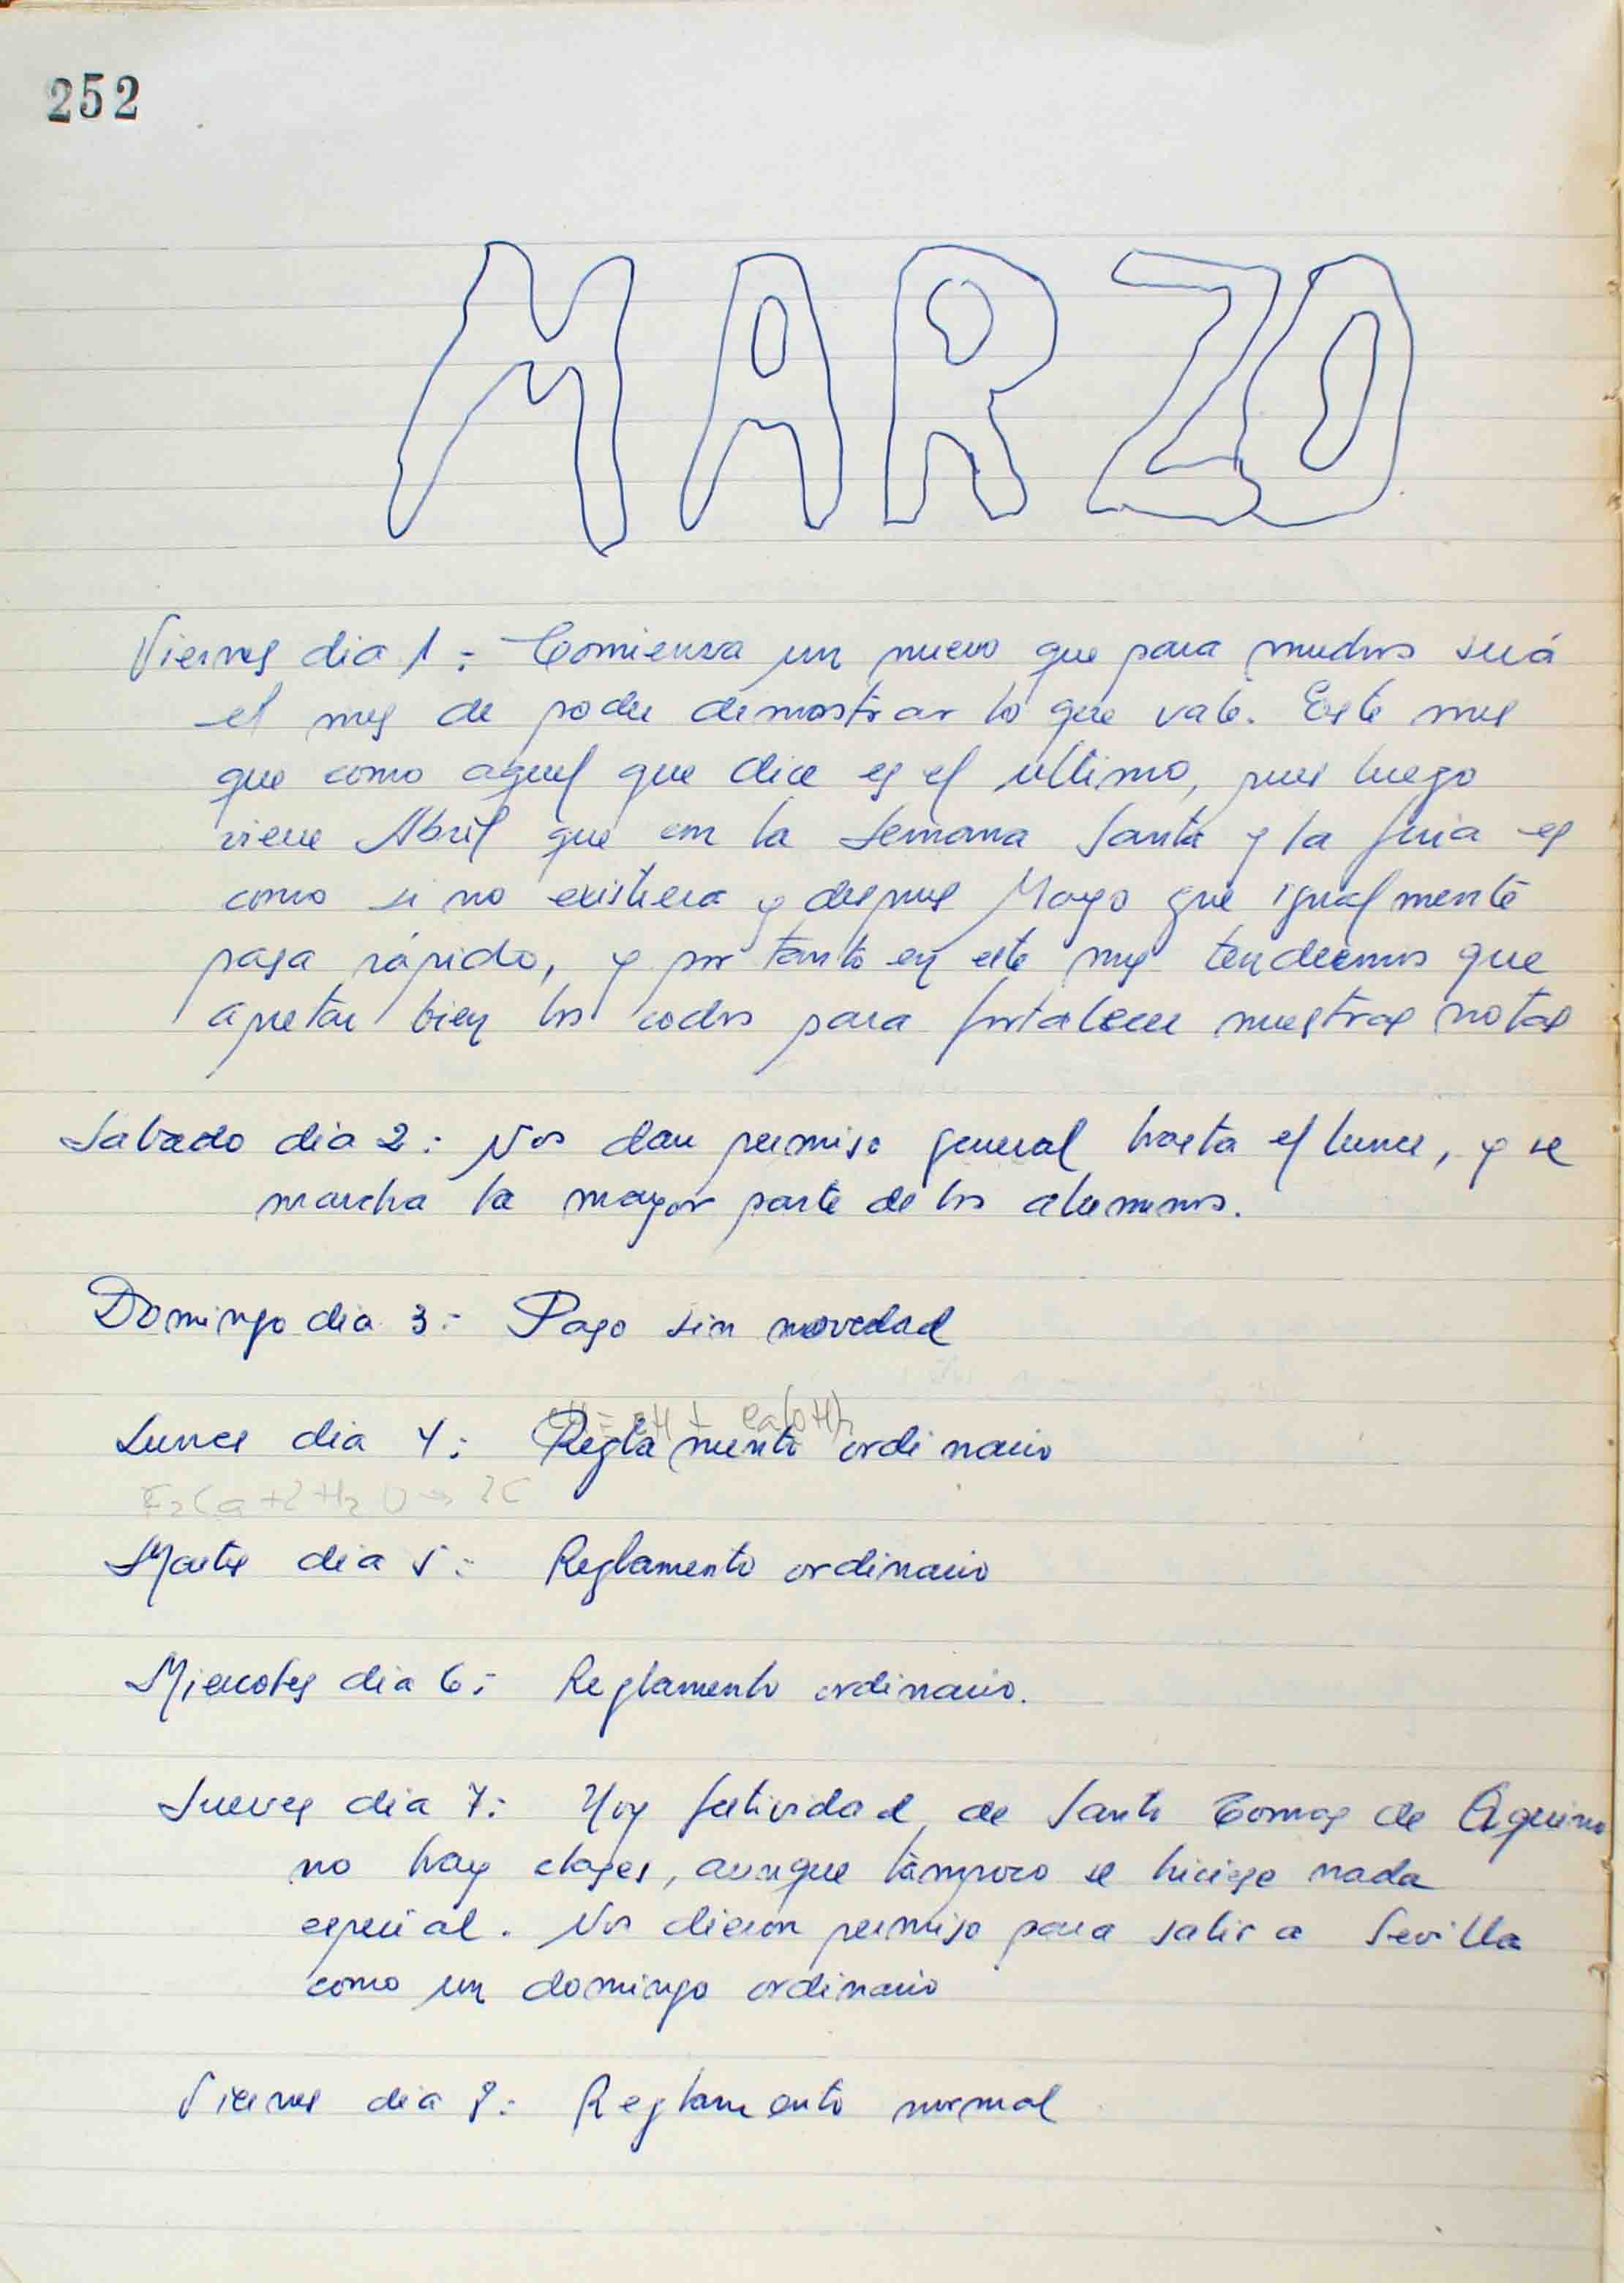 252
MARZO
Viernes dia 1: Comienza un nuevo que para muchos será
el mes de poder demostrar lo que vale. Este mes
que como aquel que dice es el ultimo, pues luego
viene Abril que con la Semana Santa y la feria es
como si no existiera y despues Mayo que igualmente
pasa rápido, y por tanto en este mes tendremos que
apretar bien los codos para fortalecer nuestras notas
Sabado dia 2: Nos dan permiso general hasta el lunes, y se
marcha la mayor parte de los alumnos.
Domingo dia 3: Paso sin novedad
Ca(OH)2
Lunes dia 4: Reglamento ordinario
F2Ca + 2H2O → 2C
Martes dia 5: Reglamento ordinario
Miercoles dia 6: Reglamento ordinario.
Jueves dia 7: Hoy festividad de Santo Tomas de Aquino
no hay clases, aunque tampoco se hiciese nada
especial. Nos dieron permiso para salir a Sevilla
como un domingo ordinario
Viernes dia 8: Reglamento normal